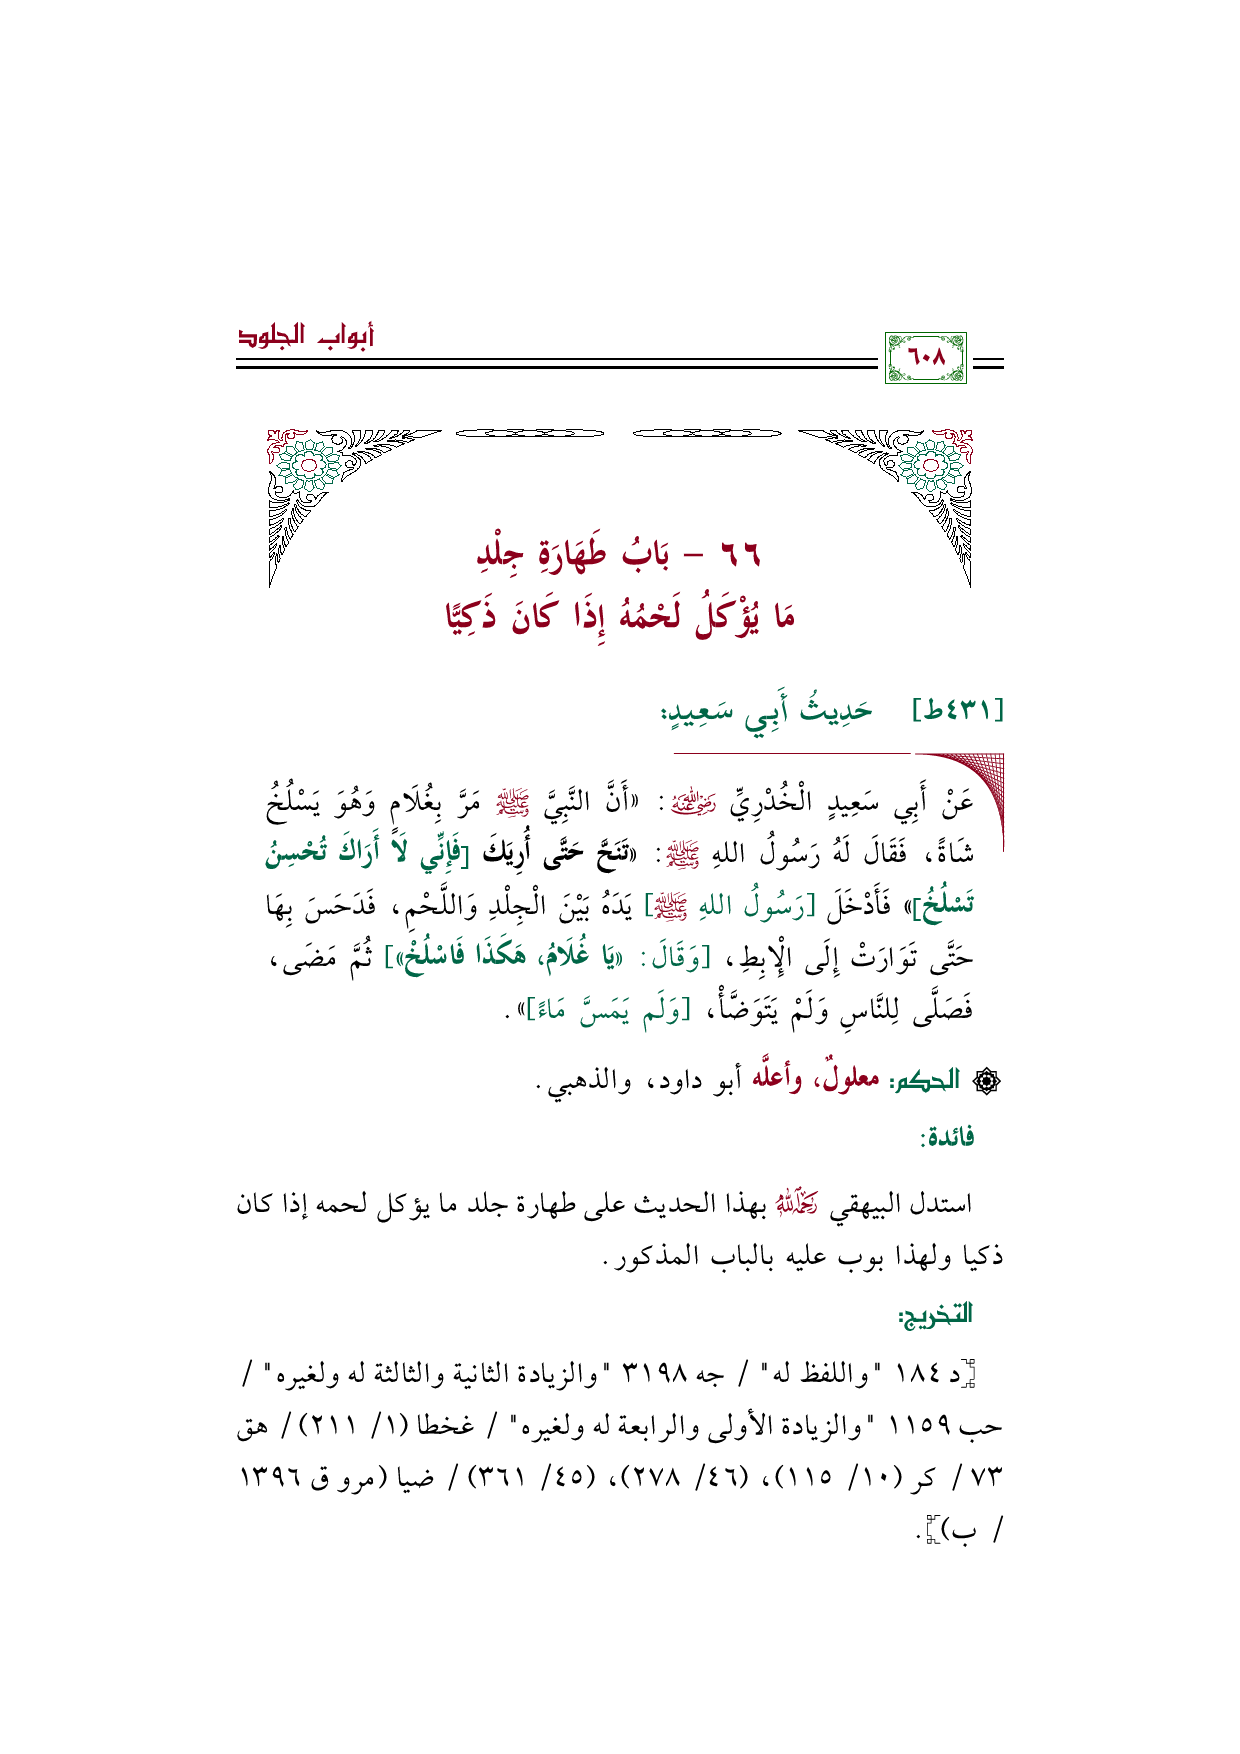 أبواب الجلود
٦٠٨
٦٦ - بَابُ طَهَارَةِ جِلْدِ
مَا يُؤْكَلُ لَحْمُهُ إِذَا كَانَ ذَكِيًّا
[٤٣١ط] حَدِيثُ أَبِي سَعِيدٍ:
عَنْ أَبِي سَعِيدٍ الْخُدْرِيِّ رضي الله عنه: «أَنَّ النَّبِيَّ ﷺ مَرَّ بِغُلَامٍ وَهُوَ يَسْلُخُ
شَاةً، فَقَالَ لَهُ رَسُولُ اللهِ ﷺ: «تَنَحَّ حَتَّى أُرِيَكَ [فَإِنِّي لَا أَرَاكَ تُحْسِنُ
تَسْلُخُ]» فَأَدْخَلَ [رَسُولُ اللهِ ﷺ] يَدَهُ بَيْنَ الْجِلْدِ وَاللَّحْمِ، فَدَحَسَ بِهَا
حَتَّى تَوَارَتْ إِلَى الْإِبِطِ، [وَقَالَ: «يَا غُلَامُ، هَكَذَا فَاسْلُخْ»] ثُمَّ مَضَى،
فَصَلَّى لِلنَّاسِ وَلَمْ يَتَوَضَّأْ، [وَلَم يَمَسَّ مَاءً]».
الحكم: معلولٌ، وأعلَّه أبو داود، والذهبي.
فائدة:
استدل البيهقي رحمه الله بهذا الحديث على طهارة جلد ما يؤكل لحمه إذا كان
ذكيا ولهذا بوب عليه بالباب المذكور.
التخريج:
[د ١٨٤ "واللفظ له" / جه ٣١٩٨ "والزيادة الثانية والثالثة له ولغيره" /
حب ١١٥٩ "والزيادة الأولى والرابعة له ولغيره" / غخطا (١/ ٢١١) / هق
٧٣ / كر (١٠/ ١١٥)، (٤٦/ ٢٧٨)، (٤٥/ ٣٦١) / ضيا (مرو ق ١٣٩٦
/ ب)].